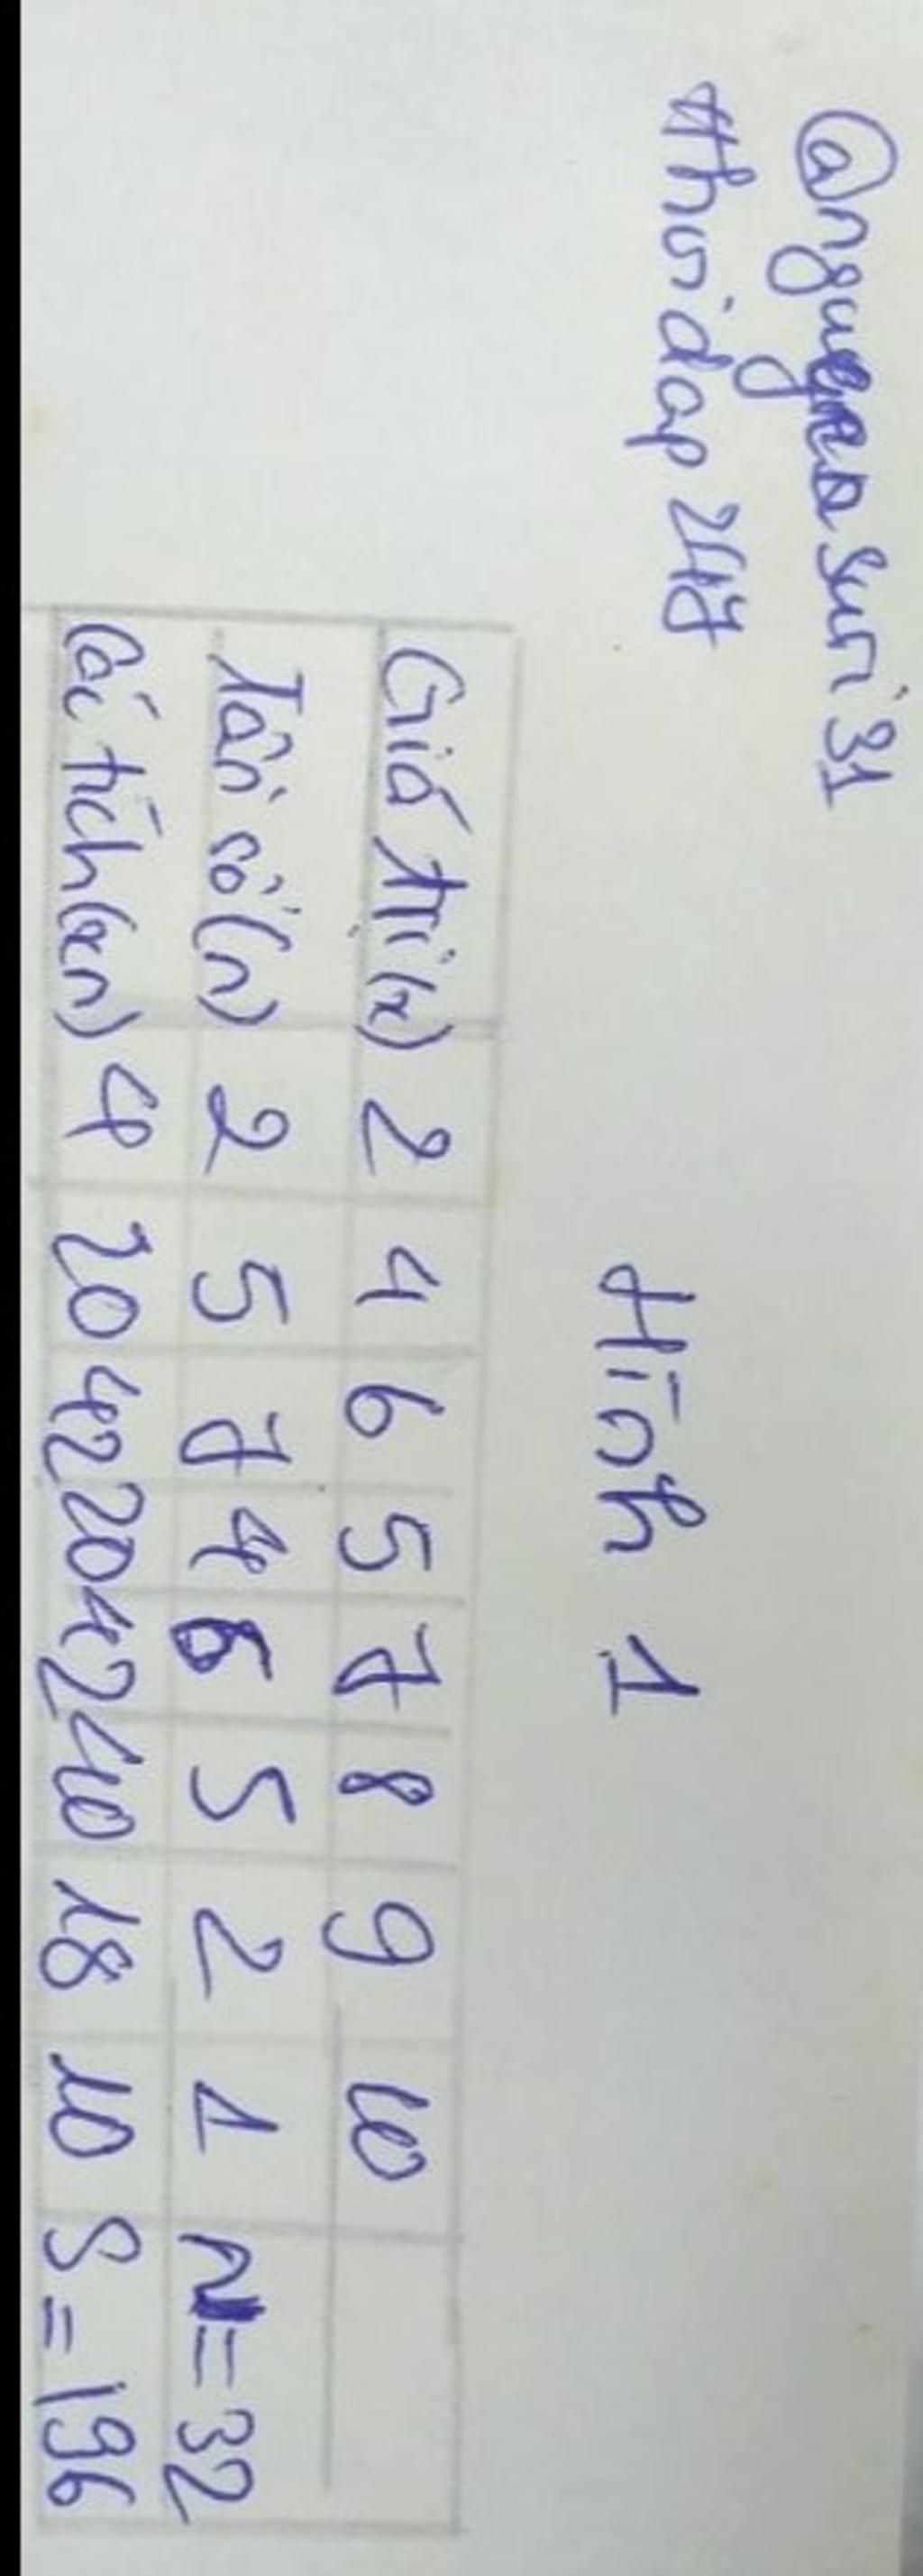 @nguyensuri31
#hoidap247
Hình 1
Giá trị (x) 2 4 6 5 7 8 9 10
Tần số (n) 2 5 7 4 6 5 2 1 N=32
Các tích (xn) 4 20 42 20 42 40 18 10 S=196